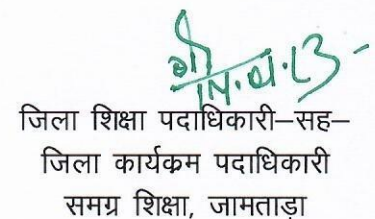 जिला शिक्षा पदाधिकारी–सह–
जिला कार्यक्रम पदाधिकारी
समग्र शिक्षा, जामताड़ा